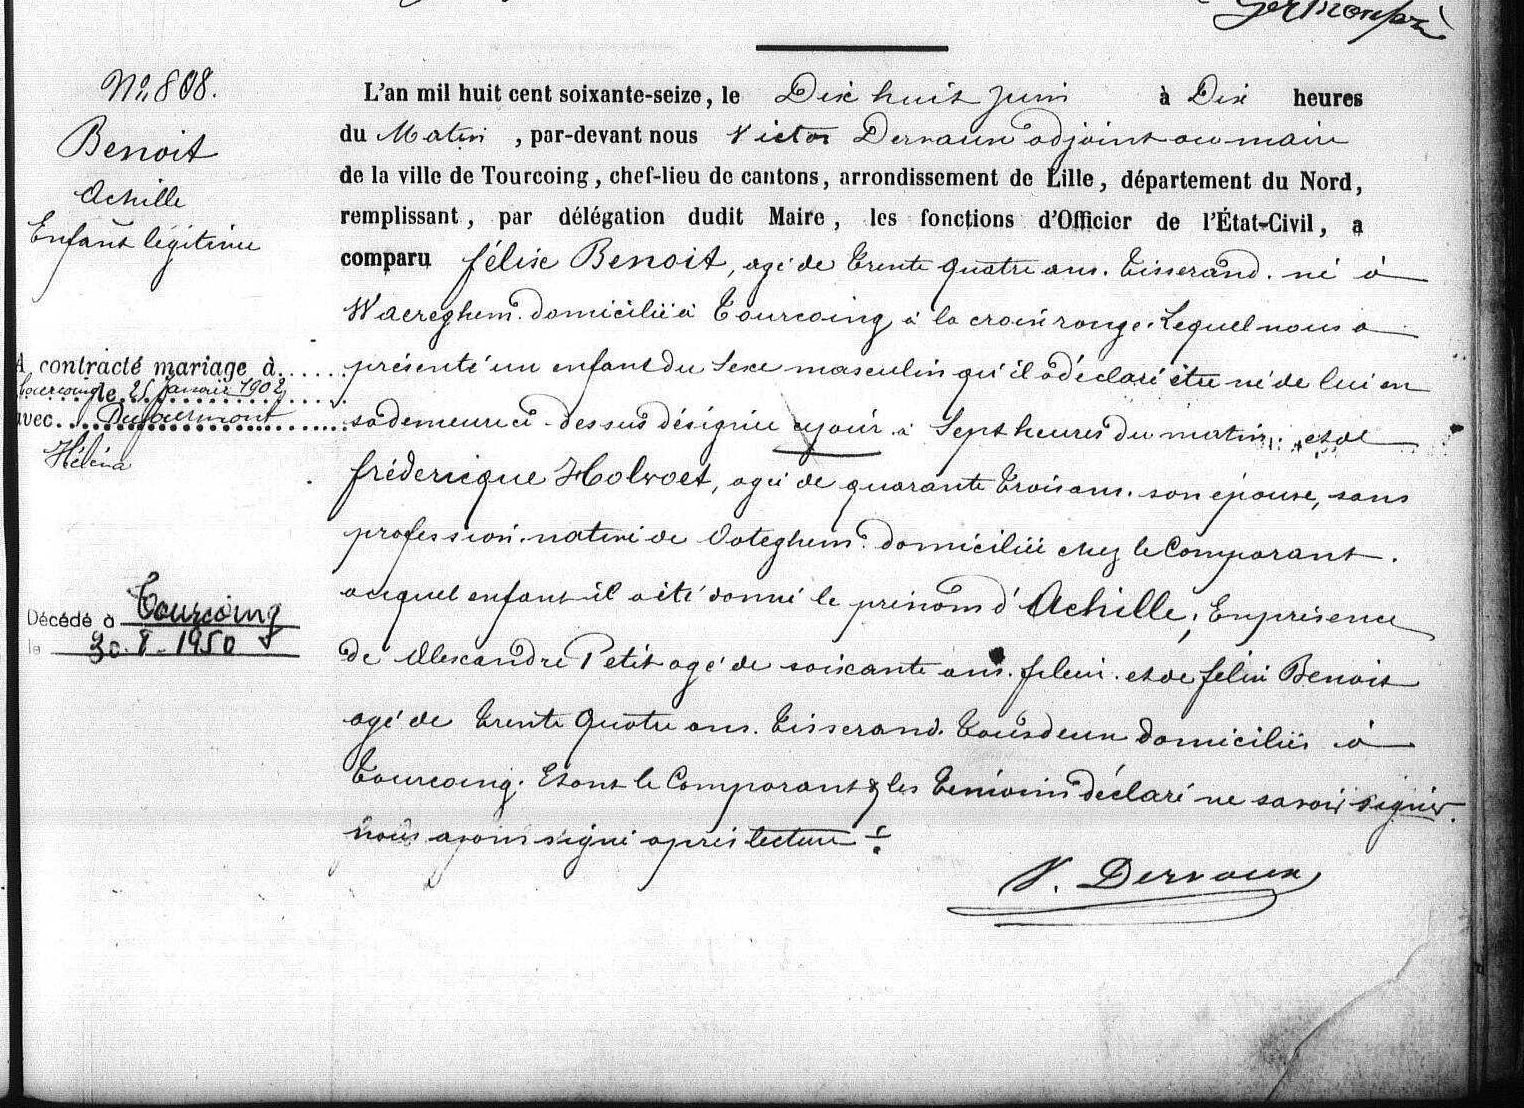 No. 808.
Benoit
Achille
Enfant légitime
A contracté mariage à
Tourcoing le 25 janvier 1902
avec Dufourmont
Héléna
Décédé à Tourcoing
le 30-8-1950
L'an mil huit cent soixante-seize, le Dix huit juin à Dix heures
du Matin, par-devant nous Victor Dervaux adjoint au maire
de la ville de Tourcoing, chef-lieu de cantons, arrondissement de Lille, département du Nord,
remplissant, par délégation dudit Maire, les fonctions d'Officier de l'État-Civil, a
comparu félix Benoit, agé de trente quatre ans. Tisserand. né à
Waereghem. domicilié à Tourcoing à la croix rouge. Lequel nous a
présenté un enfant du Sexe masculin qu'il a déclaré être né de lui en
sa demeure ci-dessus désignée ce jour à Sept heures du matin. et de
fréderique Holvoet, agée de quarante trois ans. son épouse, sans
profession. native de Ooteghem. domiciliée chez le Comparant.
auquel enfant il a été donné le prénom d'Achille; En présence
de Alexandre Petit agé de soixante ans. fileur. et de félix Benoit
agé de trente quatre ans. Tisserand. Tous deux domiciliés à
Tourcoing. Et ont le Comparant & les témoins déclaré ne savoir signer.
nous avons signé après lecture
V. Dervaux